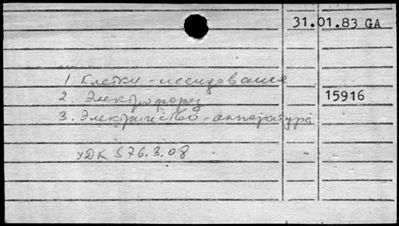 31.01.83 GA
1 Клетки - исследование
2 Электрофорез
15916
3. Электричество - аппаратура
УДК 576.3.08